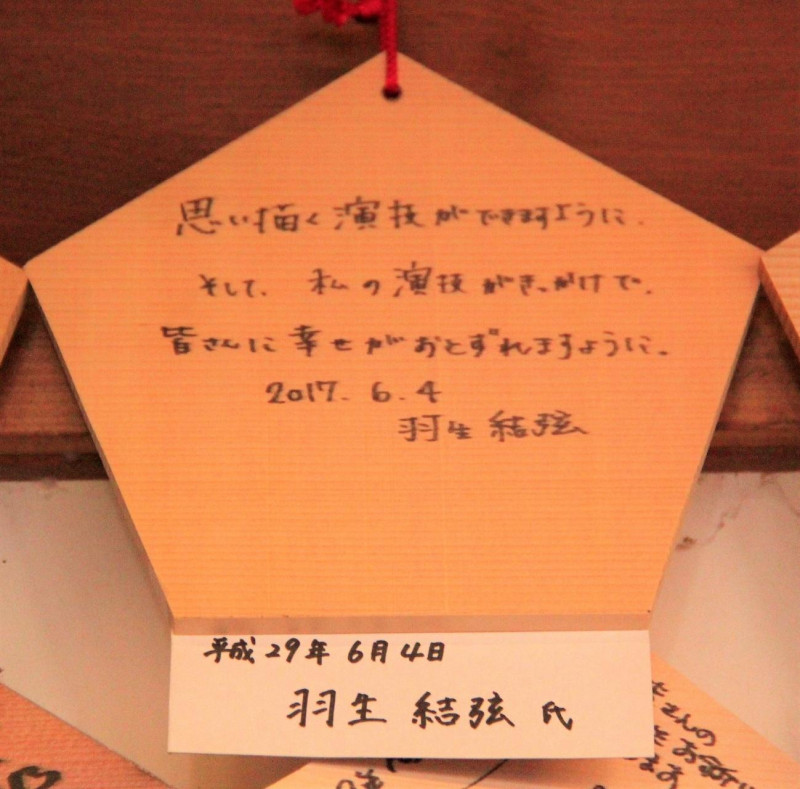 思い描く演技ができますように.
そして、私の演技がきっかけで、
皆さんに幸せがおとずれますように。
2017. 6. 4
羽生 結弦
平成29年 6月4日
羽生 結弦 氏
さんの